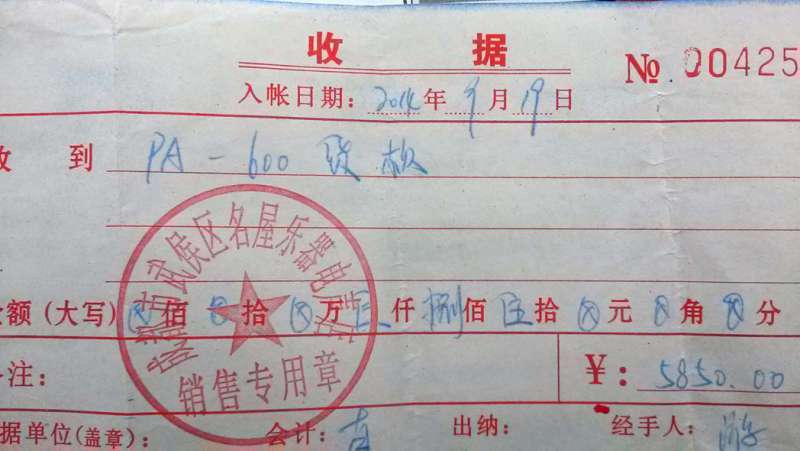 收 据
№ 00425
入帐日期: 2014年9月19日
收 到 PA-600 货款
武侯区名屋乐器电声
金额(大写) ⊗佰⊗拾⊗万伍仟捌佰伍拾⊗元⊗角⊗分
销售专用章
备注:
¥: 5850.00
据单位(盖章): 会计: 出纳: 经手人: 游